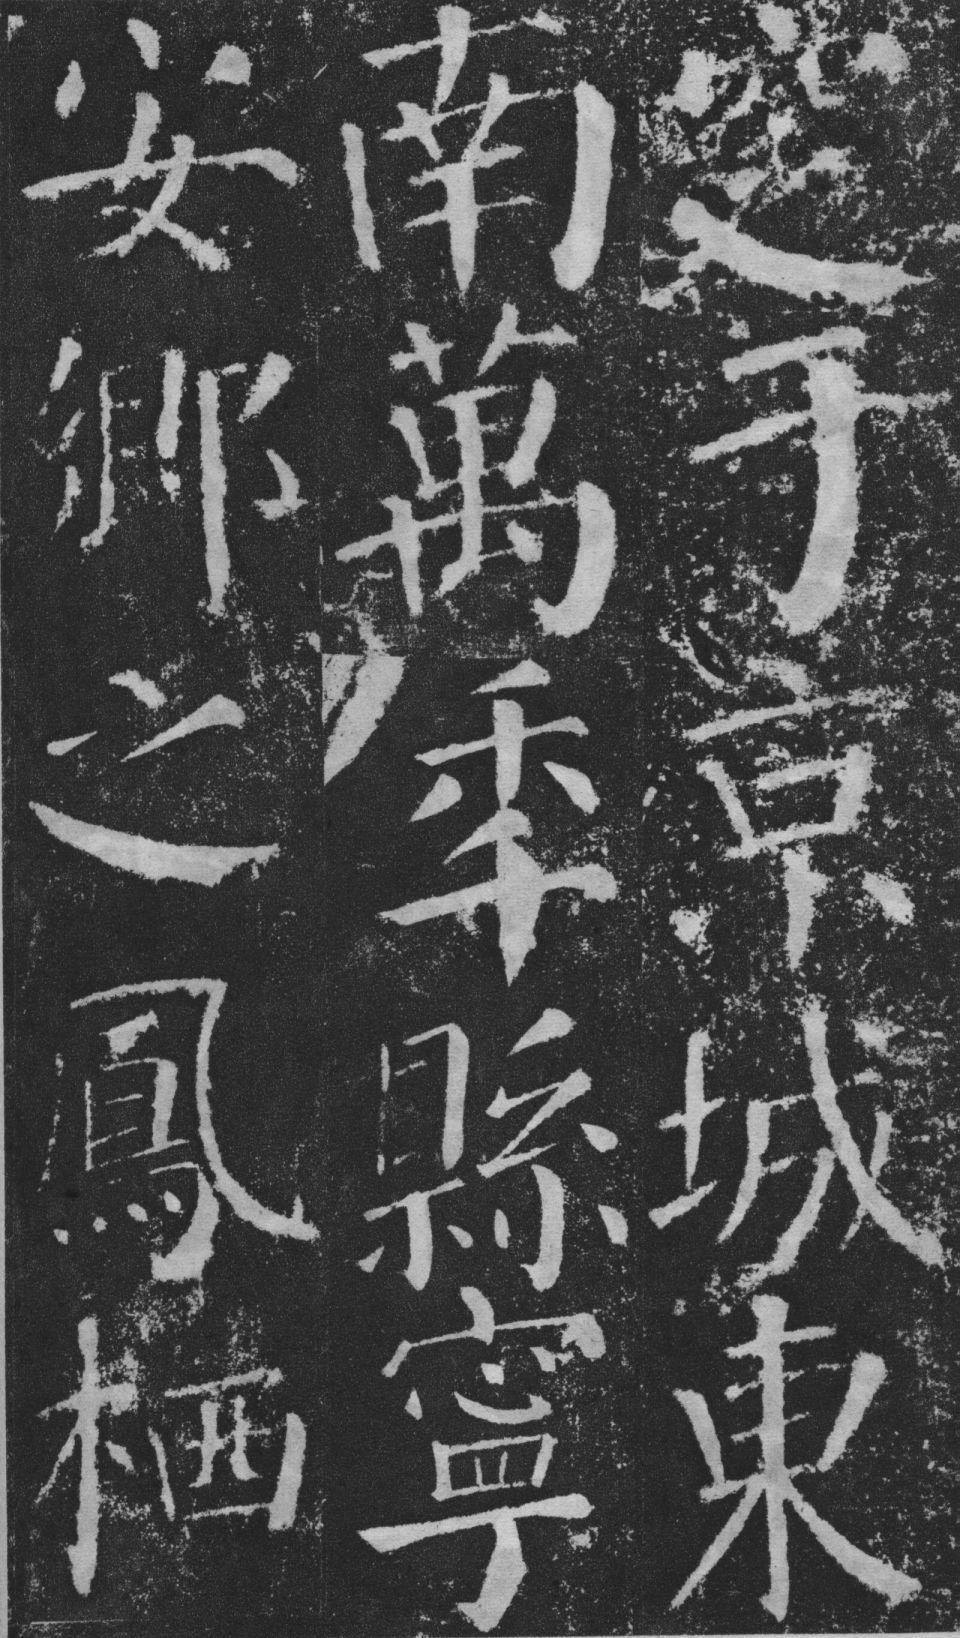 窆于京城東
南萬秊縣寧
安鄉之鳳栖